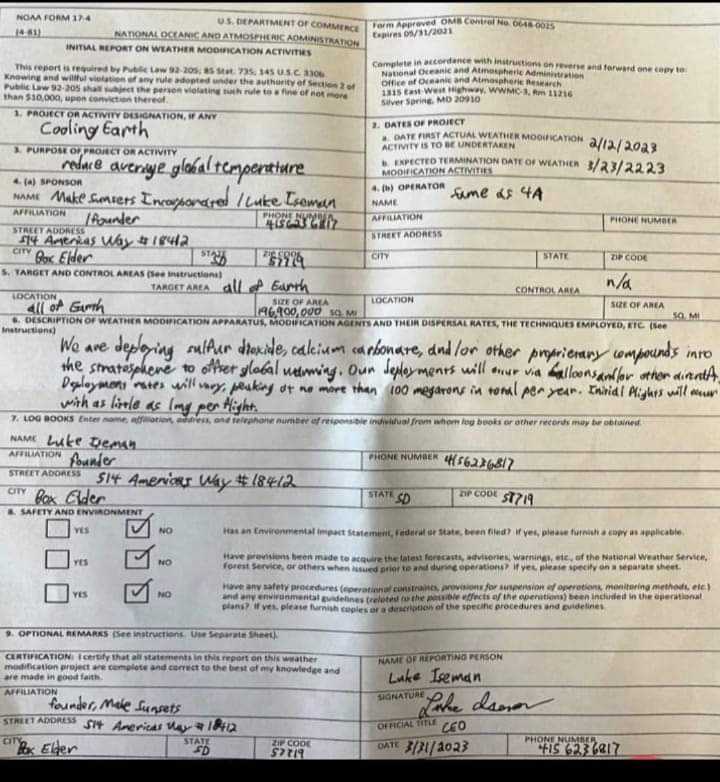 NOAA FORM 17-4
(4-81)
U.S. DEPARTMENT OF COMMERCE
NATIONAL OCEANIC AND ATMOSPHERIC ADMINISTRATION
INITIAL REPORT ON WEATHER MODIFICATION ACTIVITIES
Form Approved OMB Control No. 0648-0025
Expires 05/31/2021
This report is required by Public Law 92-205; 85 Stat. 735; 145 U.S.C. 330b.
Knowing and willful violation of any rule adopted under the authority of Section 2 of
Public Law 92-205 shall subject the person violating such rule to a fine of not more
than $10,000, upon conviction thereof.
Complete in accordance with instructions on reverse and forward one copy to:
National Oceanic and Atmospheric Administration
Office of Oceanic and Atmospheric Research
1315 East-West Highway, WWMC-3, Rm 11216
Silver Spring, MD 20910
1. PROJECT OR ACTIVITY DESIGNATION, IF ANY
Cooling Earth
2. DATES OF PROJECT
a. DATE FIRST ACTUAL WEATHER MODIFICATION
ACTIVITY IS TO BE UNDERTAKEN 2/12/2023
3. PURPOSE OF PROJECT OR ACTIVITY
reduce average global temperature
b. EXPECTED TERMINATION DATE OF WEATHER
MODIFICATION ACTIVITIES 3/23/2223
4. (a) SPONSOR
NAME Make Sunsets Incorporated / Luke Iseman
4. (b) OPERATOR same as 4A
NAME
AFFILIATION /founder
PHONE NUMBER
4156236817
AFFILIATION
PHONE NUMBER
STREET ADDRESS
514 Americas Way # 18412
STREET ADDRESS
CITY Box Elder
STATE SD
ZIP CODE 57719
CITY
STATE
ZIP CODE
5. TARGET AND CONTROL AREAS (See Instructions)
TARGET AREA all of Earth
CONTROL AREA n/a
LOCATION
all of Earth
SIZE OF AREA
196,900,000 SQ. MI
LOCATION
SIZE OF AREA
SQ. MI
6. DESCRIPTION OF WEATHER MODIFICATION APPARATUS, MODIFICATION AGENTS AND THEIR DISPERSAL RATES, THE TECHNIQUES EMPLOYED, ETC. (See
Instructions)
We are deploying sulfur dioxide, calcium carbonate, and/or other proprietary compounds into
the stratosphere to offset global warming. Our deployments will occur via balloons and/or other aircraft.
Deployment rates will vary, peaking at no more than 100 megatons in total per year. Initial flights will occur
with as little as 1mg per flight.
7. LOG BOOKS Enter name, affiliation, address, and telephone number of responsible individual from whom log books or other records may be obtained.
NAME Luke Iseman
AFFILIATION founder
PHONE NUMBER 4156236817
STREET ADDRESS 514 Americas Way # 18412
CITY Box Elder
STATE SD
ZIP CODE 57719
8. SAFETY AND ENVIRONMENT
YES NO Has an Environmental Impact Statement, Federal or State, been filed? If yes, please furnish a copy as applicable.
YES NO Have provisions been made to acquire the latest forecasts, advisories, warnings, etc., of the National Weather Service,
Forest Service, or others when issued prior to and during operations? If yes, please specify on a separate sheet.
YES NO Have any safety procedures (operational constraints, provisions for suspension of operations, monitoring methods, etc.)
and any environmental guidelines (related to the possible effects of the operations) been included in the operational
plans? If yes, please furnish copies or a description of the specific procedures and guidelines.
9. OPTIONAL REMARKS (See instructions. Use Separate Sheet).
CERTIFICATION: I certify that all statements in this report on this weather
modification project are complete and correct to the best of my knowledge and
are made in good faith.
NAME OF REPORTING PERSON
Luke Iseman
AFFILIATION
founder, Make Sunsets
SIGNATURE Luke Iseman
STREET ADDRESS 514 Americas Way # 18412
OFFICIAL TITLE CEO
CITY Box Elder
STATE
SD
ZIP CODE
57719
DATE 3/31/2023
PHONE NUMBER
415 6236817